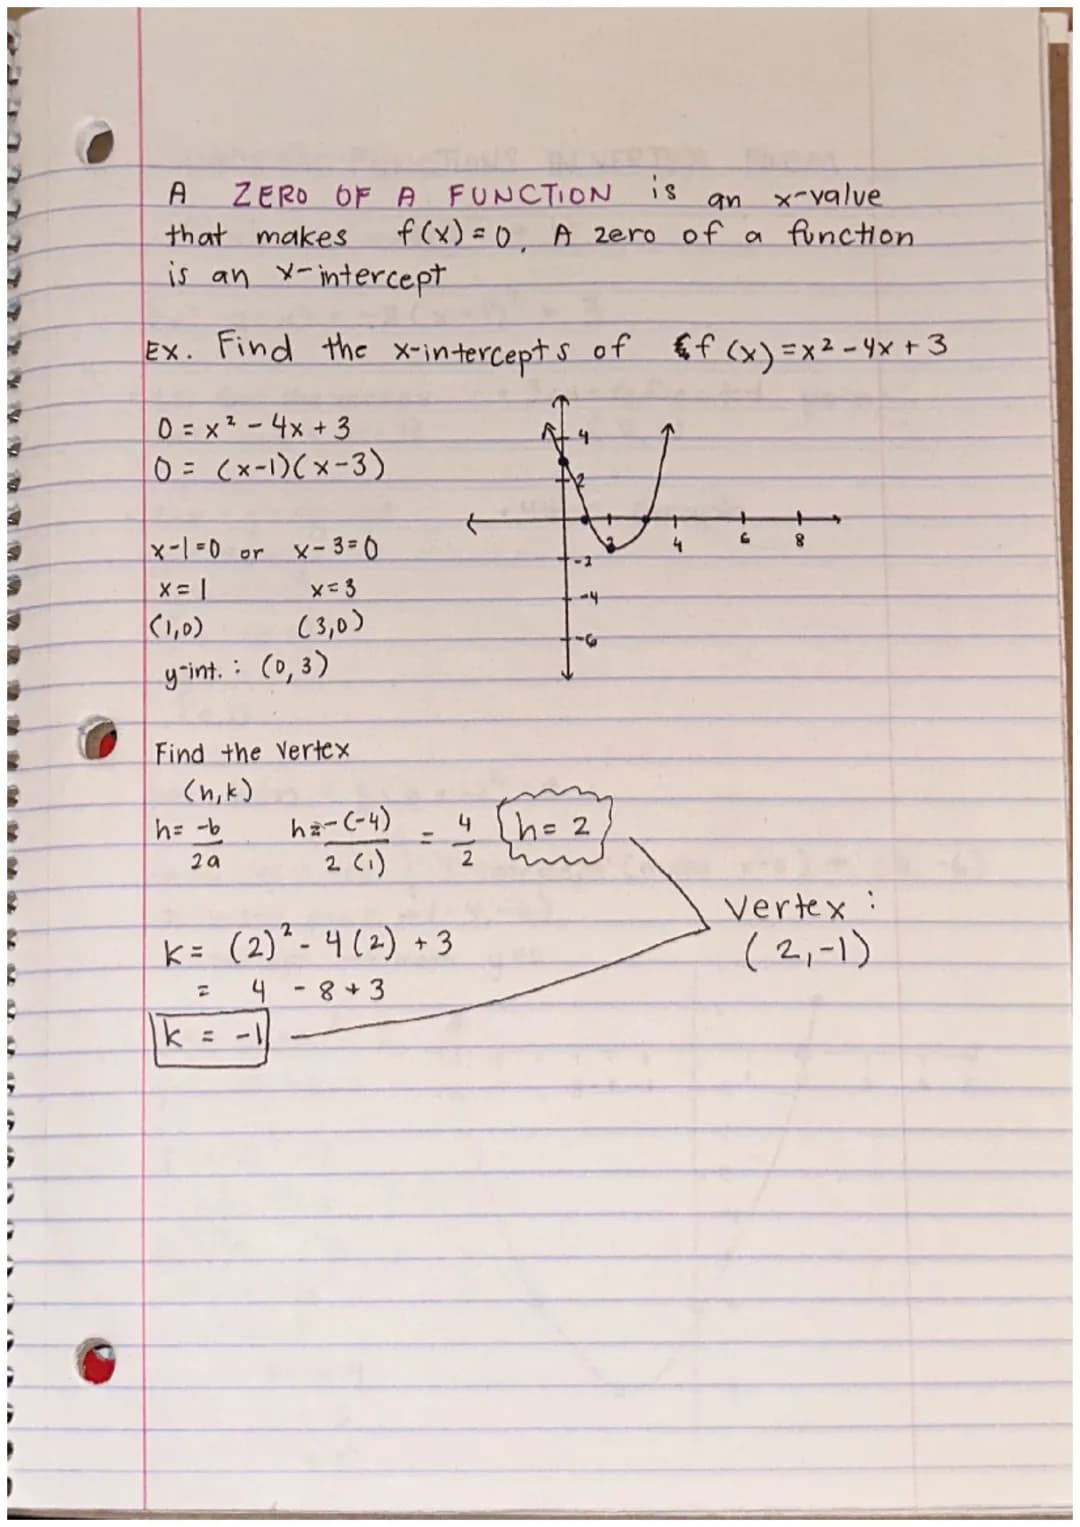 A ZERO OF A FUNCTION is an x-value
that makes f(x)=0. A zero of a function
is an x-intercept
EX. Find the x-intercepts of f(x)=x² - 4x + 3
0 = x² - 4x + 3
0 = (x-1)(x-3)
x-1=0 or x-3=0
x=1 x=3
(1,0) (3,0)
y-int. : (0,3)
4
2
2 4 6 8
-2
-4
-6
Find the vertex
(h,k)
h= -b/2a h=-(-4)/2(1) = 4/2 h= 2
Vertex :
(2,-1)
k= (2)² - 4(2) +3
= 4 - 8 + 3
k = -1